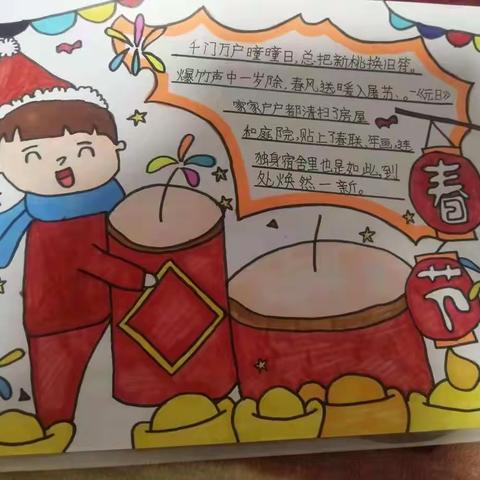 千门万户曈曈日,总把新桃换旧符。
爆竹声中一岁除,春风送暖入屠苏。。一《元日》
家家户户都清扫了房屋
和庭院,贴上了春联、年画,连
独身宿舍里也是如此,到
处焕然一新。
春
节